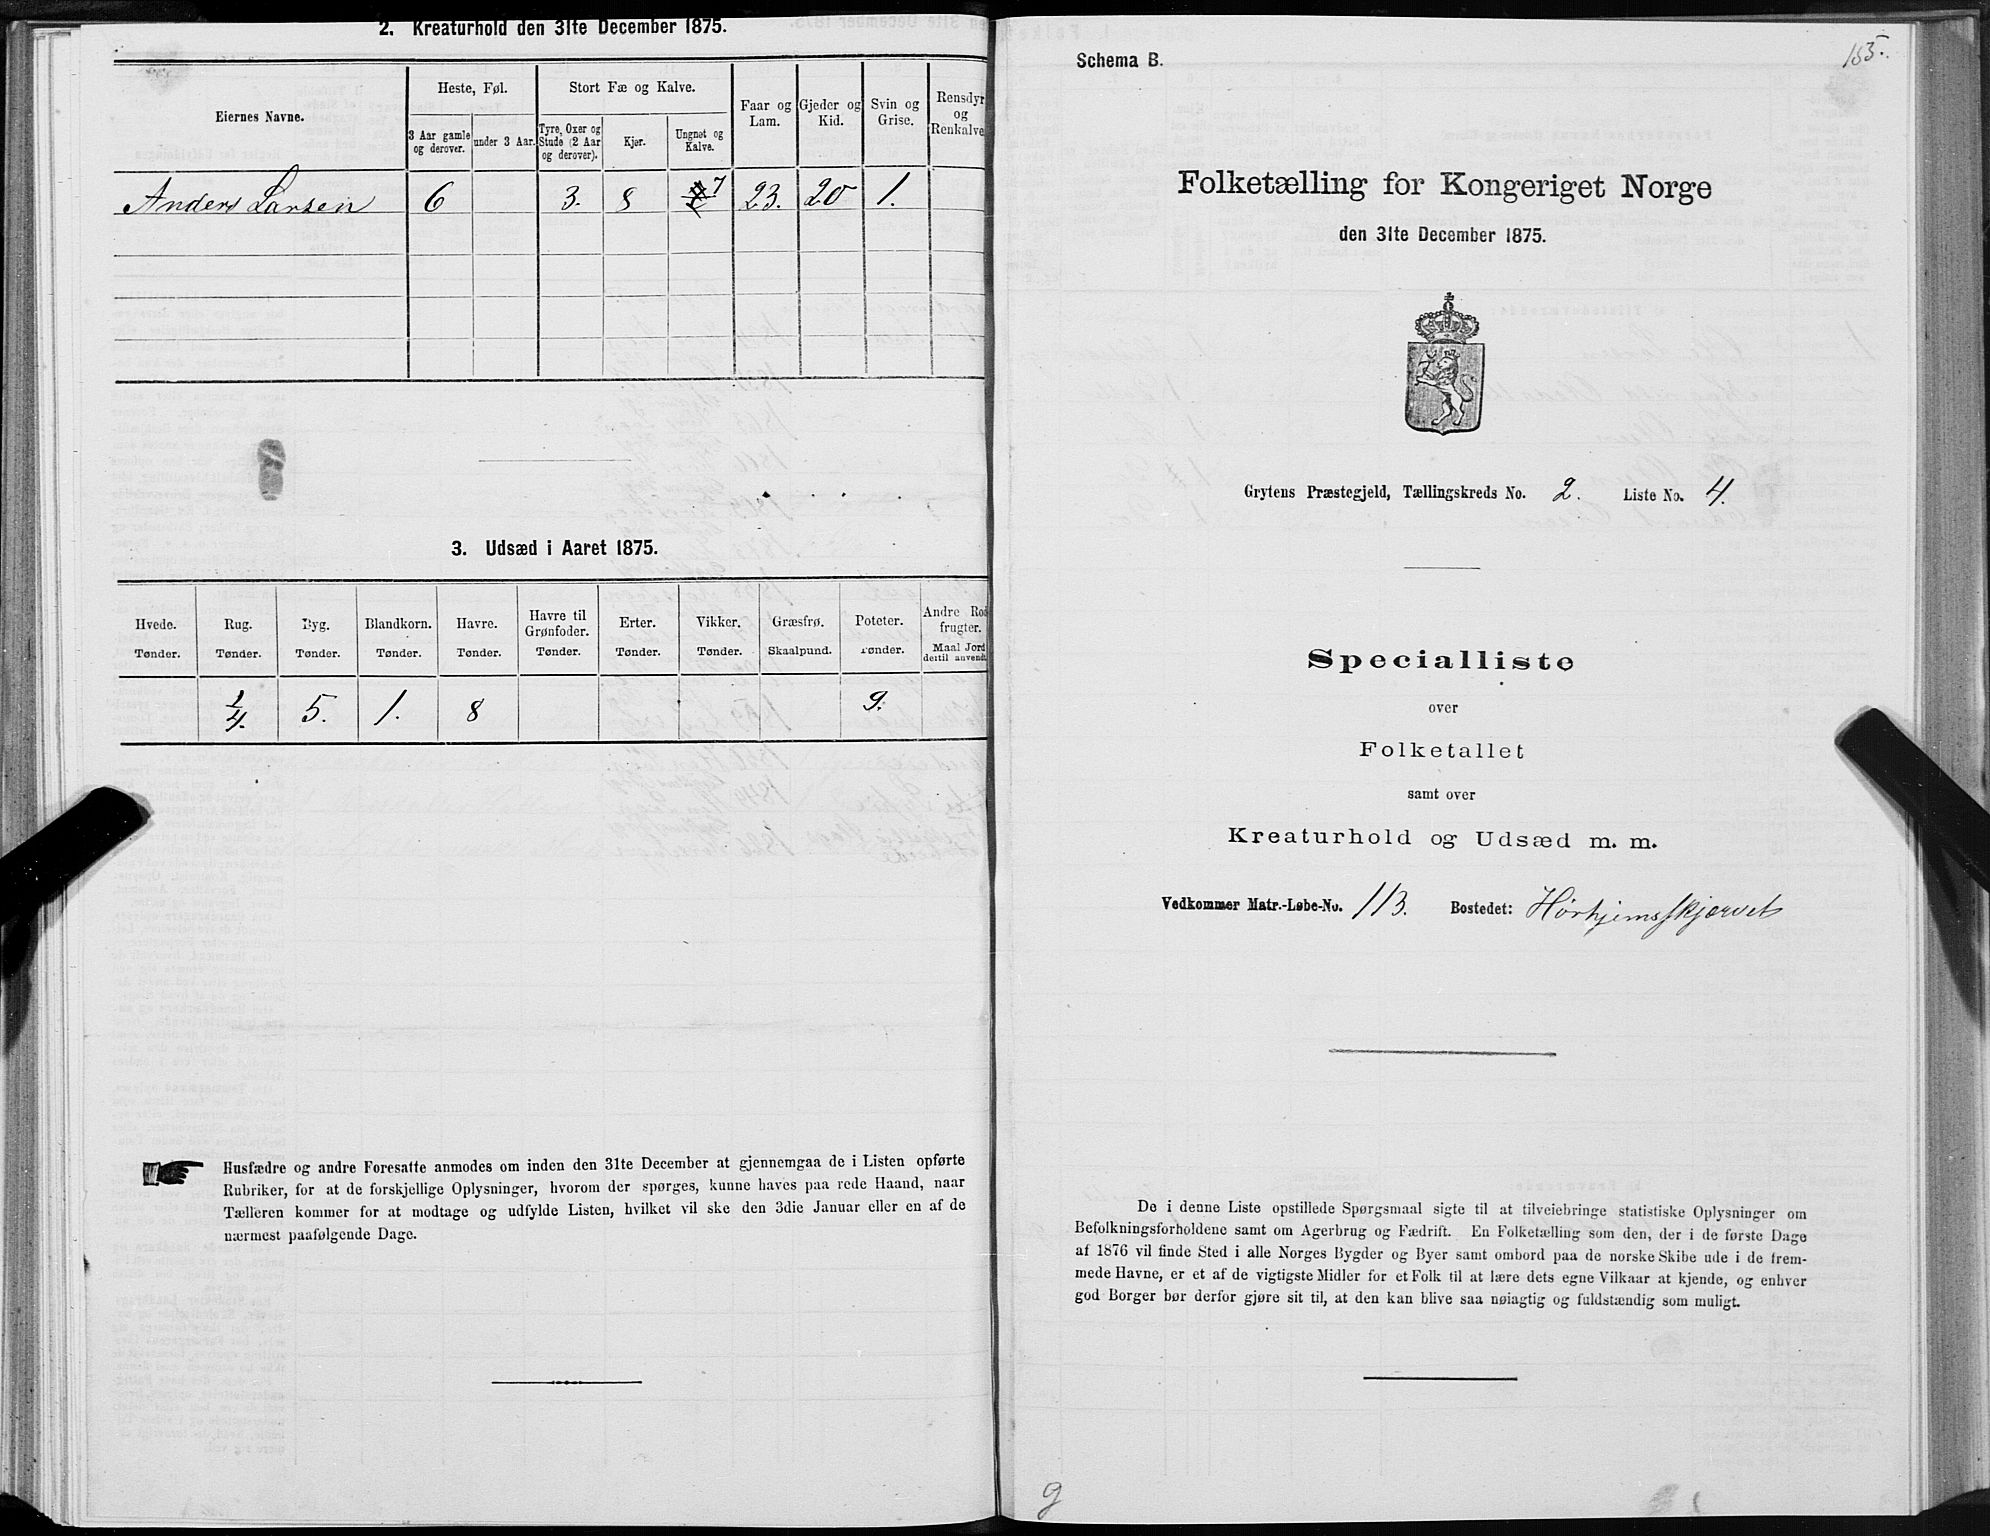 2. Kreaturhold den 31te December 1875.
Eiernes Navne.
Heste, Føl.
Stort Fæ og Kalve.
Faar og Lam.
Gjeder og Kid.
Svin og Grise.
Rensdyr og Renkalve
3 Aar gamle og derover.
under 3 Aar.
Tyre, Oxer og Stude (2 Aar og derover).
Kjør.
Ungnøt og Kalve.
Anders Larsen 6 3. 8 7 23. 20 1.
3. Udsæd i Aaret 1875.
Hvede. Rug. Byg. Blandkorn. Havre. Havre til Grønfoder. Erter. Vikker. Græsfrø. Poteter. Andre Rod frugter.
Tønder. Tønder. Tønder. Tønder. Tønder. Tønder. Tønder. Tønder. Skaalpund. Tønder. Maal Jord dertil anvendt
1/4. 5. 1. 8 9.
Husfædre og andre Foresatte anmodes om inden den 31te December at gjennemgaa de i Listen opførte
Rubriker, for at de forskjellige Oplysninger, hvorom der spørges, kunne haves paa rede Haand, naar
Tælleren kommer for at modtage og udfylde Listen, hvilket vil ske den 3die Januar eller en af de
nærmest paafølgende Dage.
Schema B.
155.
Folketælling for Kongeriget Norge
den 31te December 1875.
Grytens Præstegjeld, Tællingskreds No. 2. Liste No. 4.
Specialliste
over
Folketallet
samt over
Kreaturhold og Udsæd m. m.
Vedkommer Matr.-Løbe-No. 113. Bostedet: Hørhjemsskjærvet
De i denne Liste opstillede Spørgsmaal sigte til at tilveiebringe statistiske Oplysninger om
Befolkningsforholdene samt om Agerbrug og Fædrift. En Folketælling som den, der i de første Dage
af 1876 vil finde Sted i alle Norges Bygder og Byer samt ombord paa de norske Skibe ude i de frem-
mede Havne, er et af de vigtigste Midler for et Folk til at lære dets egne Vilkaar at kjende, og enhver
god Borger bør derfor gjøre sit til, at den kan blive saa nøiagtig og fuldstændig som muligt.
g